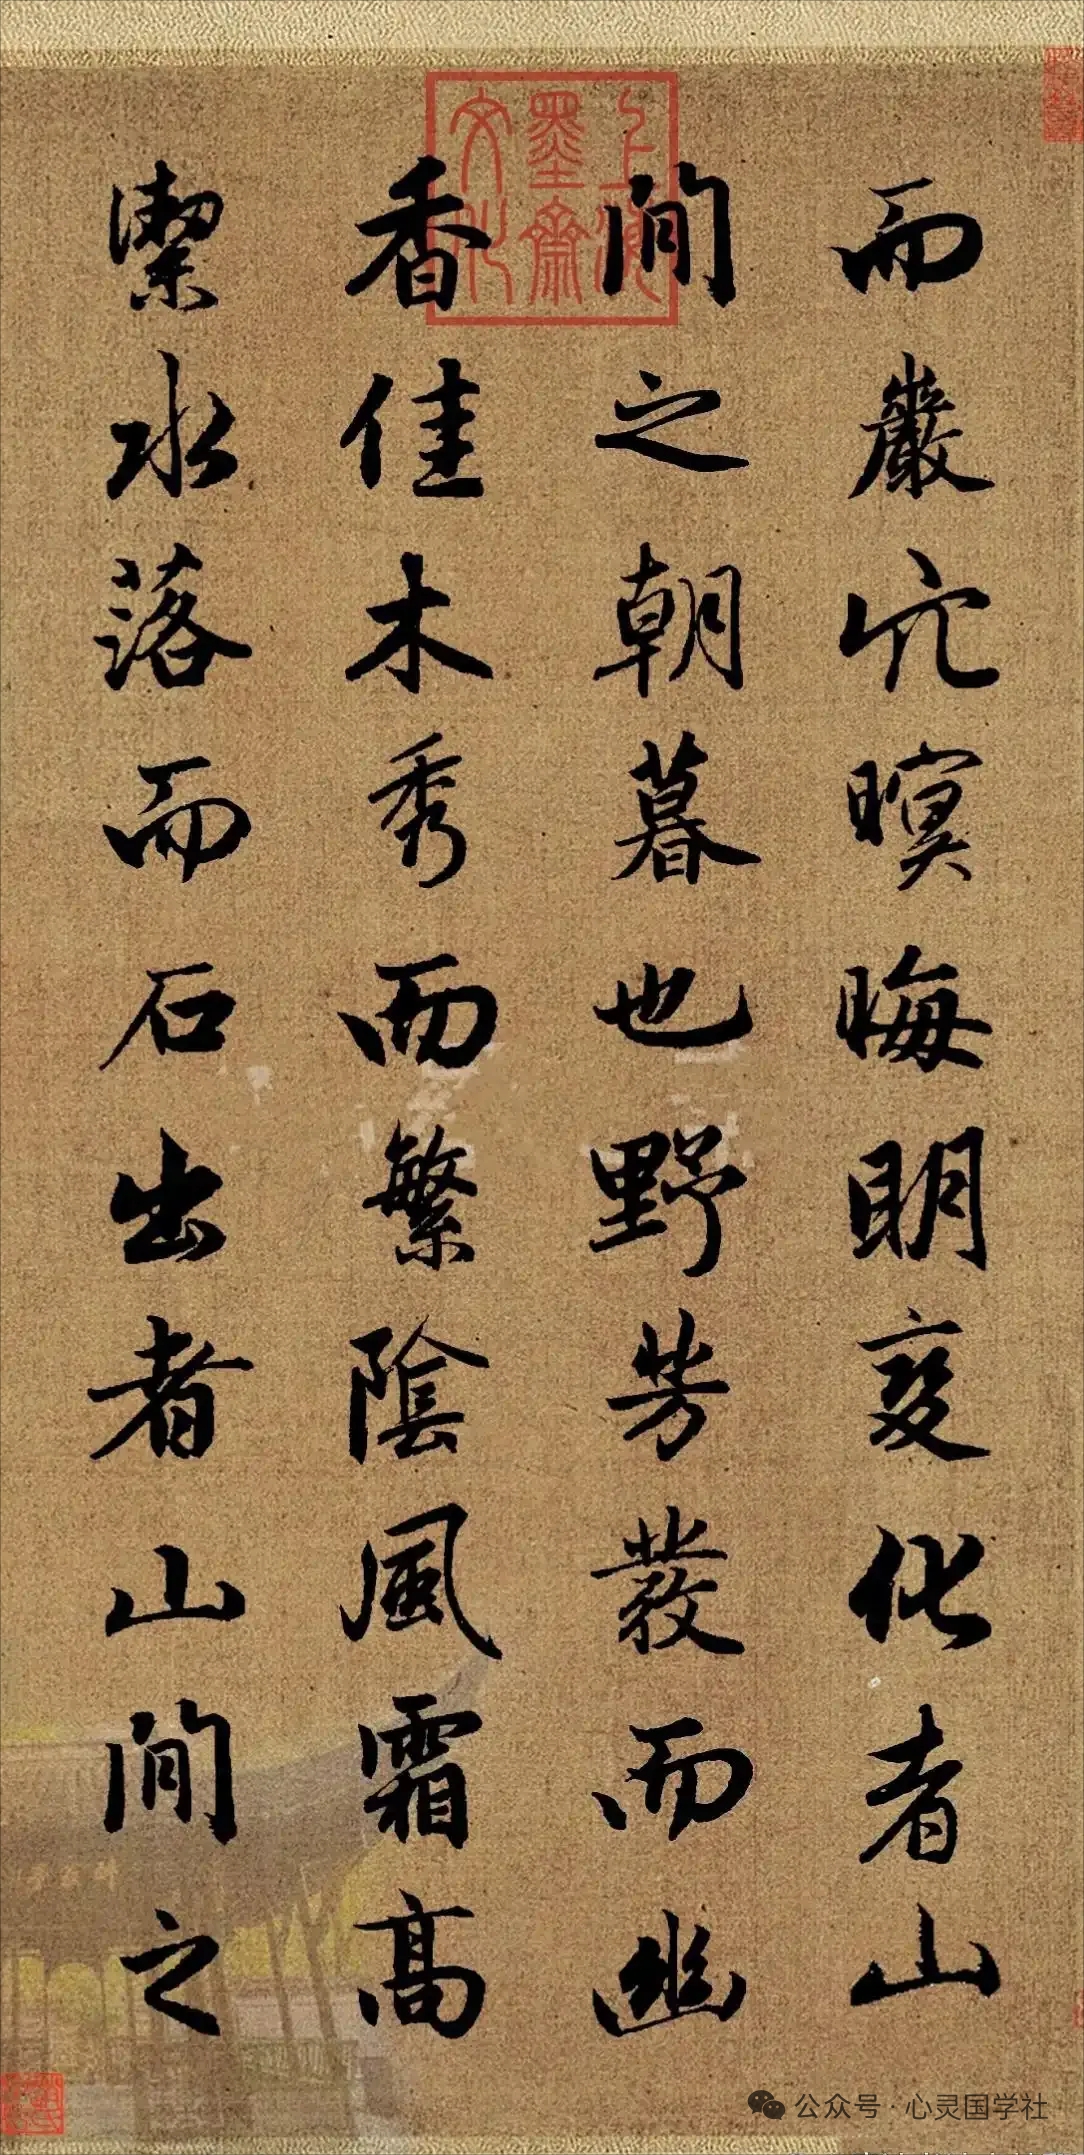 而巖穴暝晦明變化者山
間之朝暮也野芳發而幽
香佳木秀而繁陰風霜高
潔水落而石出者山間之
公众号 · 心灵国学社